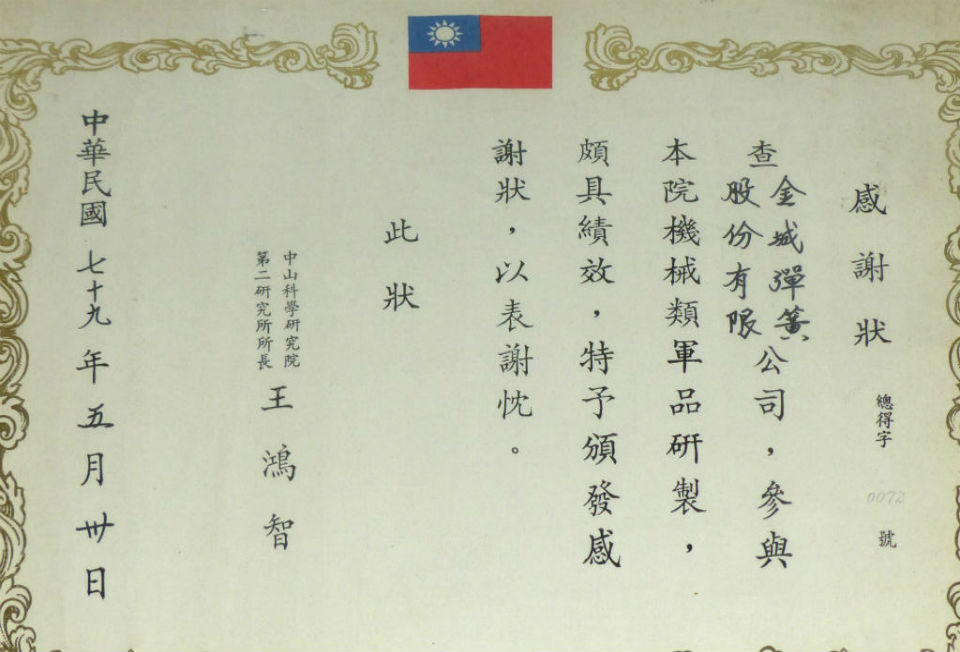 感謝狀
總得字 0072 號
查金城彈簧股份有限公司，參與
本院機械類軍品研製，
頗具績效，特予頒發感
謝狀，以表謝忱。
此狀
中山科學研究院
第二研究所所長
王鴻智
中華民國七十九年五月卅日